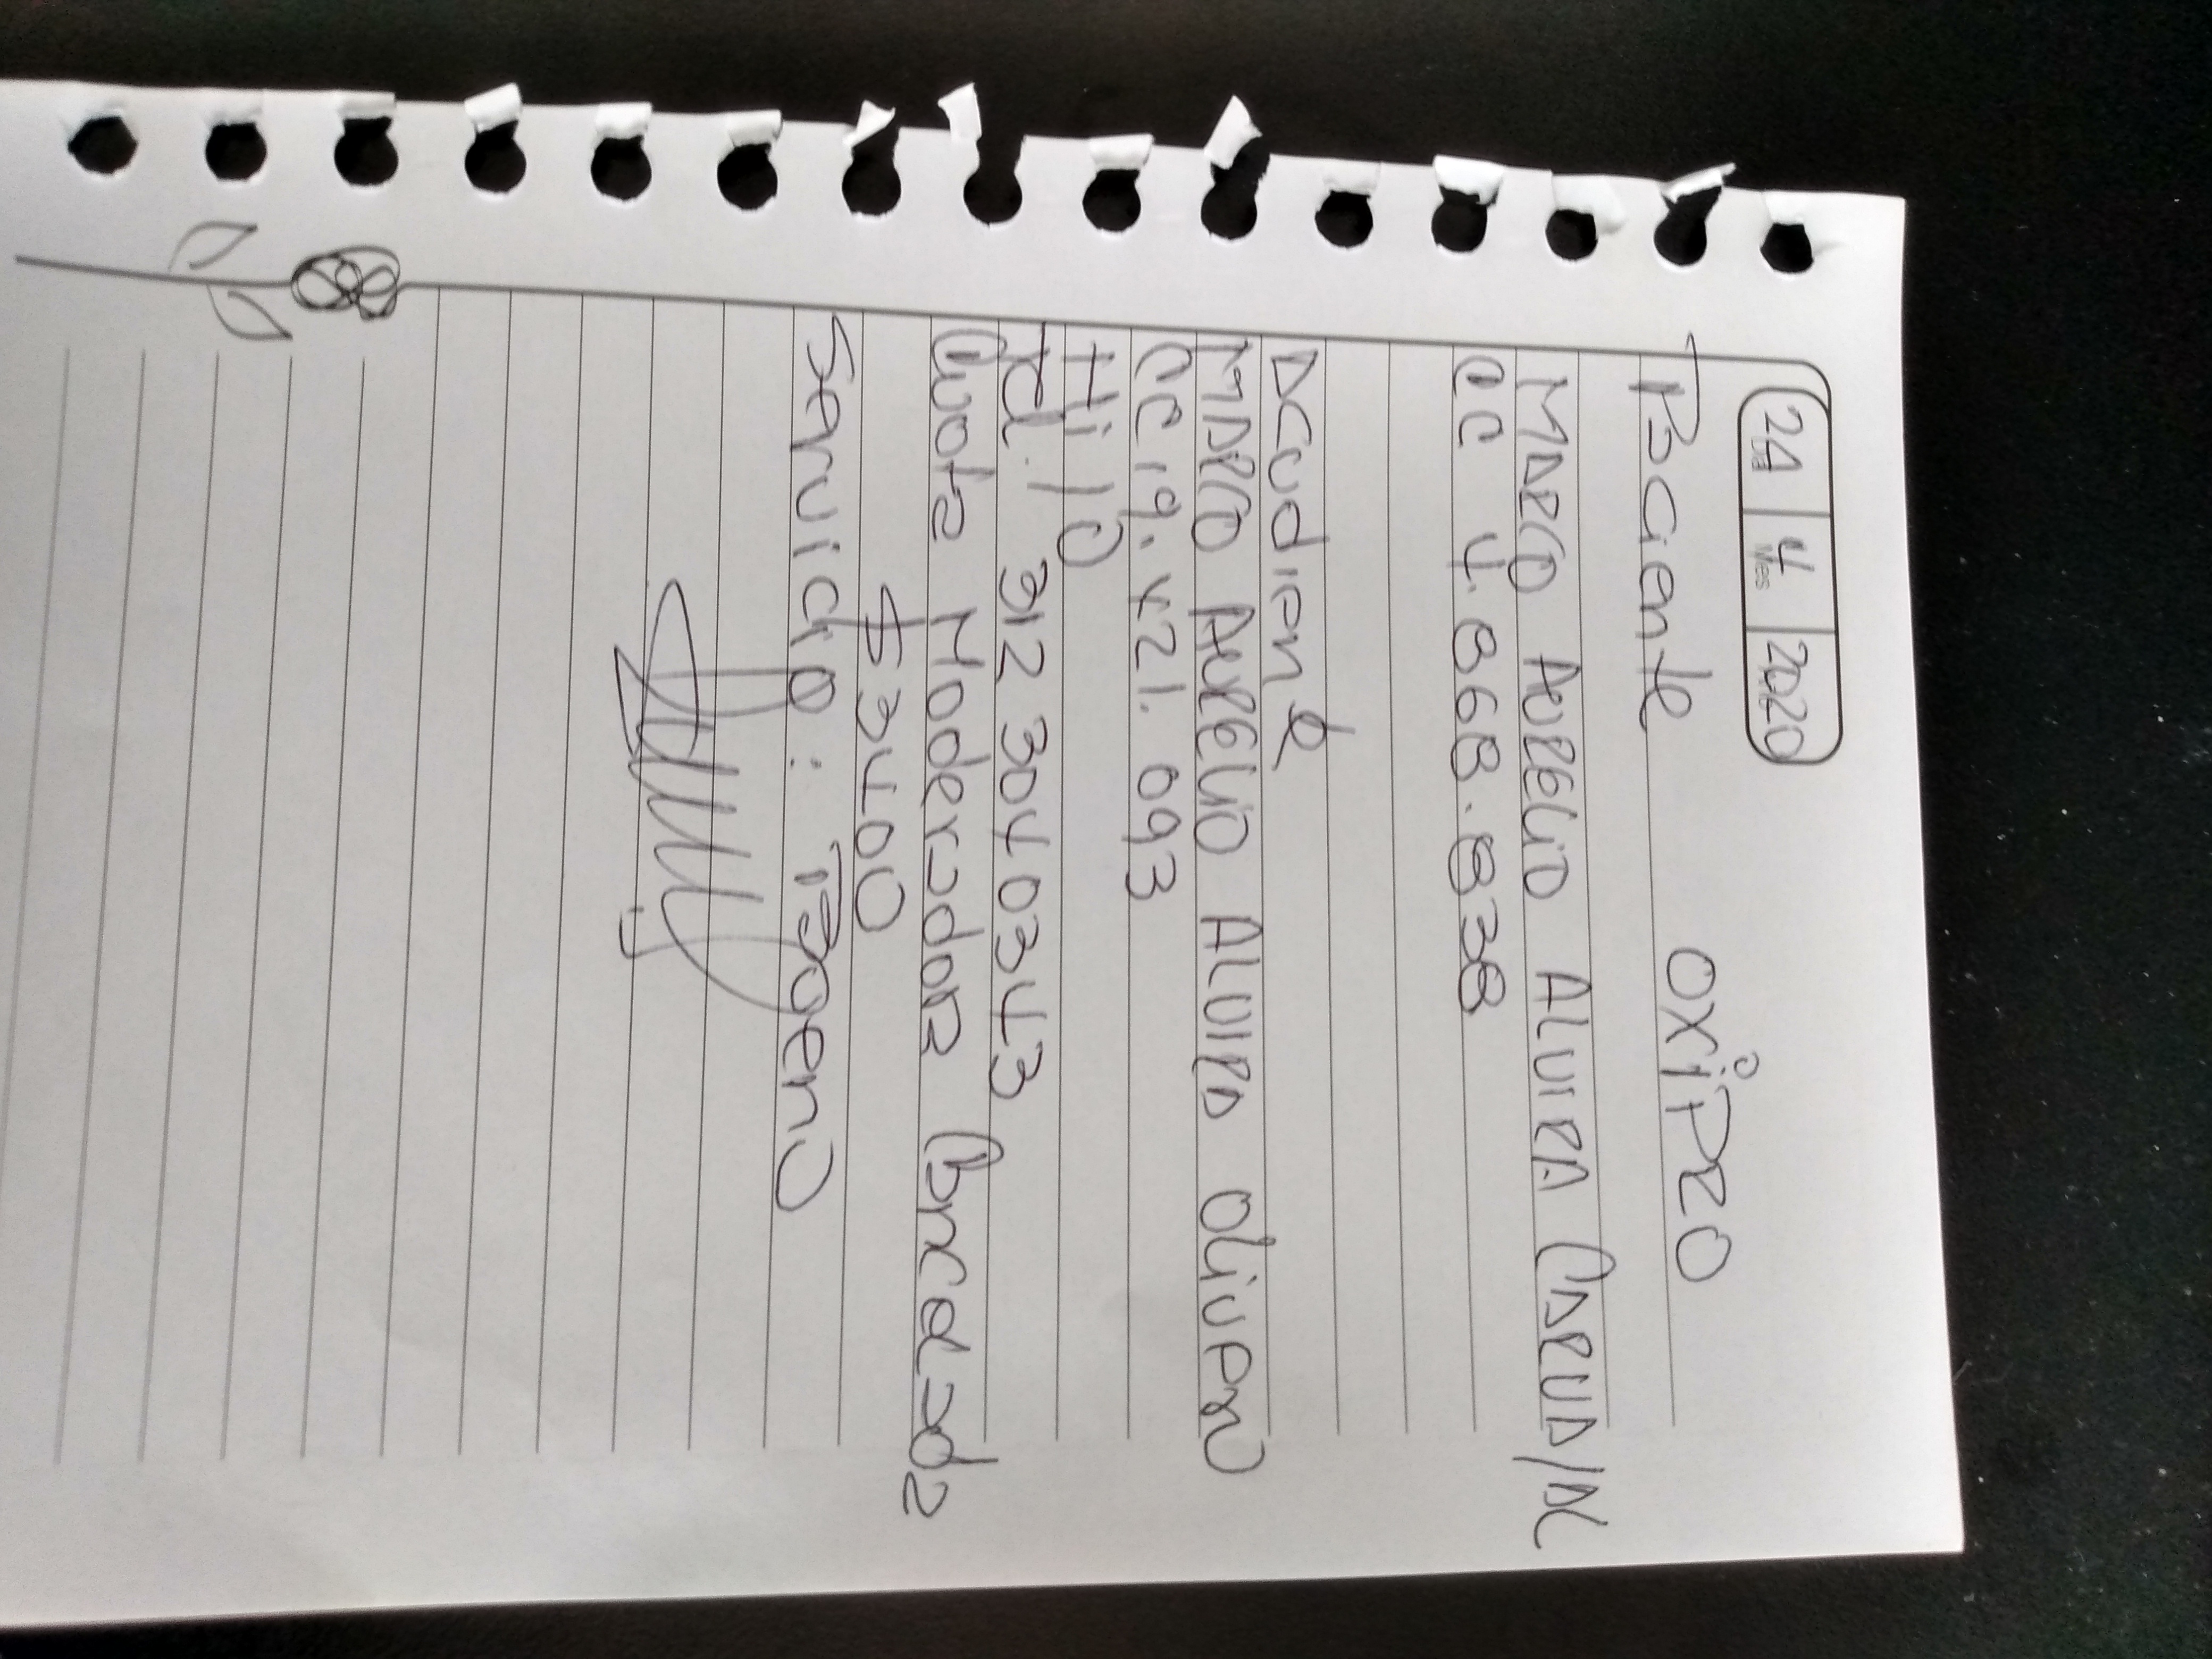 24 4 2020
Mes
Paciente OXIPRO
MARCO AURELIO ALVIRA CARVAJAL
CC 4.868.838
Acudiente
MARCO AURELIO ALVIRA Olivero
CC 19.421.093
Hijo
Tel. 312 3040343
Cuota Moderadora
$3400
Servicio: